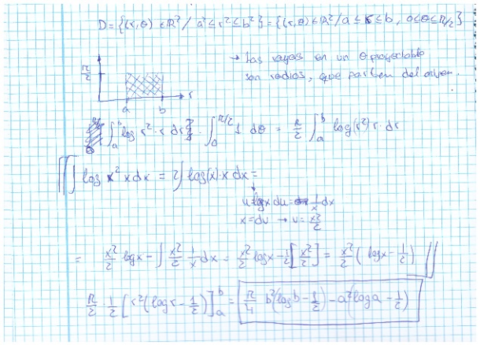 D = {(r,θ) ∈ R² / a² ≤ r² ≤ b²} = {(r,θ) ∈ R² / a ≤ r ≤ b, 0 ≤ θ ≤ π/2}
→ Las en un θ proyectable
son radios, que parten del origen.
π/2
a b r
∫_a^b log r² · r dr · ∫_0^{π/2} 1 dθ = π/2 ∫_a^b log(r²) r · dr
∫ log x² x dx = 2∫ log(x) x dx =
u = log x du = 1/x dx
x = dv → v = x²/2
= x²/2 log x - ∫ x²/2 1/x dx = x²/2 log x - 1/2 [x²/2] = x²/2 (log x - 1/2)
π/2 · 1/2 [r² (log r - 1/2)]_a^b = π/4 b² (log b - 1/2) - a² (log a - 1/2)